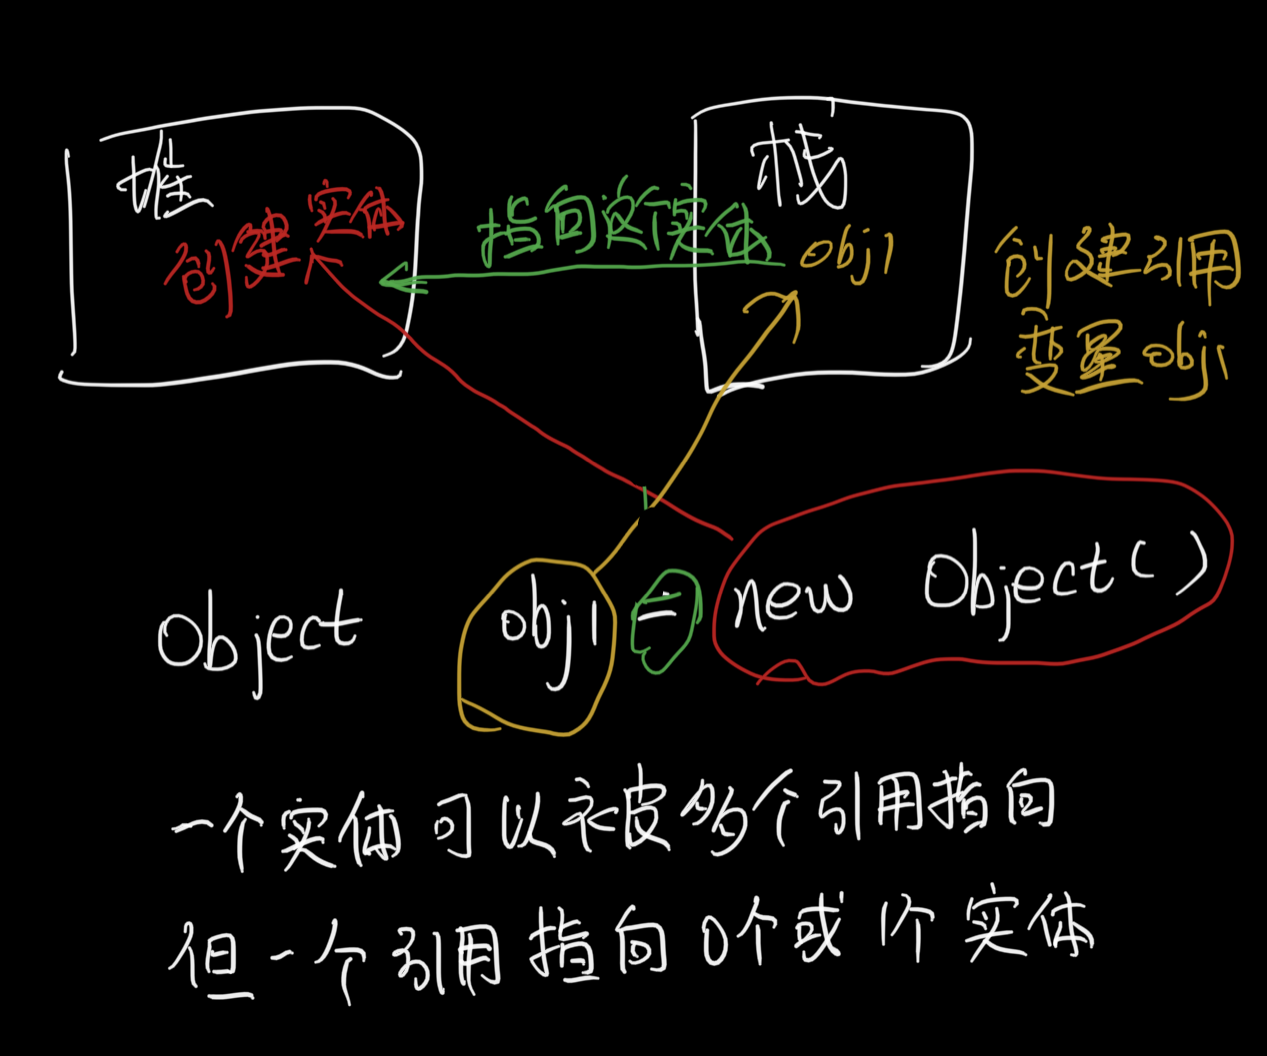 堆
创建实体
指向这个实体
栈
obj1
创建引用
变量obj1
Object obj1 = new Object()
一个实体可以被多个引用指向
但一个引用指向0个或1个实体